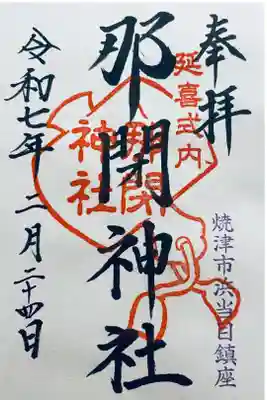 奉拝
延喜式内
焼津市浜当目鎮座
那閇神社
那閇
神社
令和七年二月二十四日